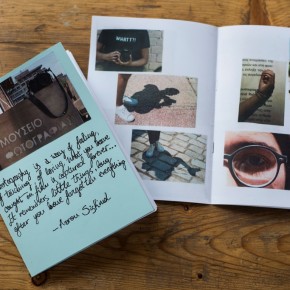 ΜΟΥΣΕΙΟ
ΦΩΤΟΓΡΑΦΙΑΣ
Photography is a way of feeling,
of touching, of loving. What you have
caught on film is captured forever...
It remembers little things, long
after you have forgotten everything
- Aaron Siskind
WHAT??!